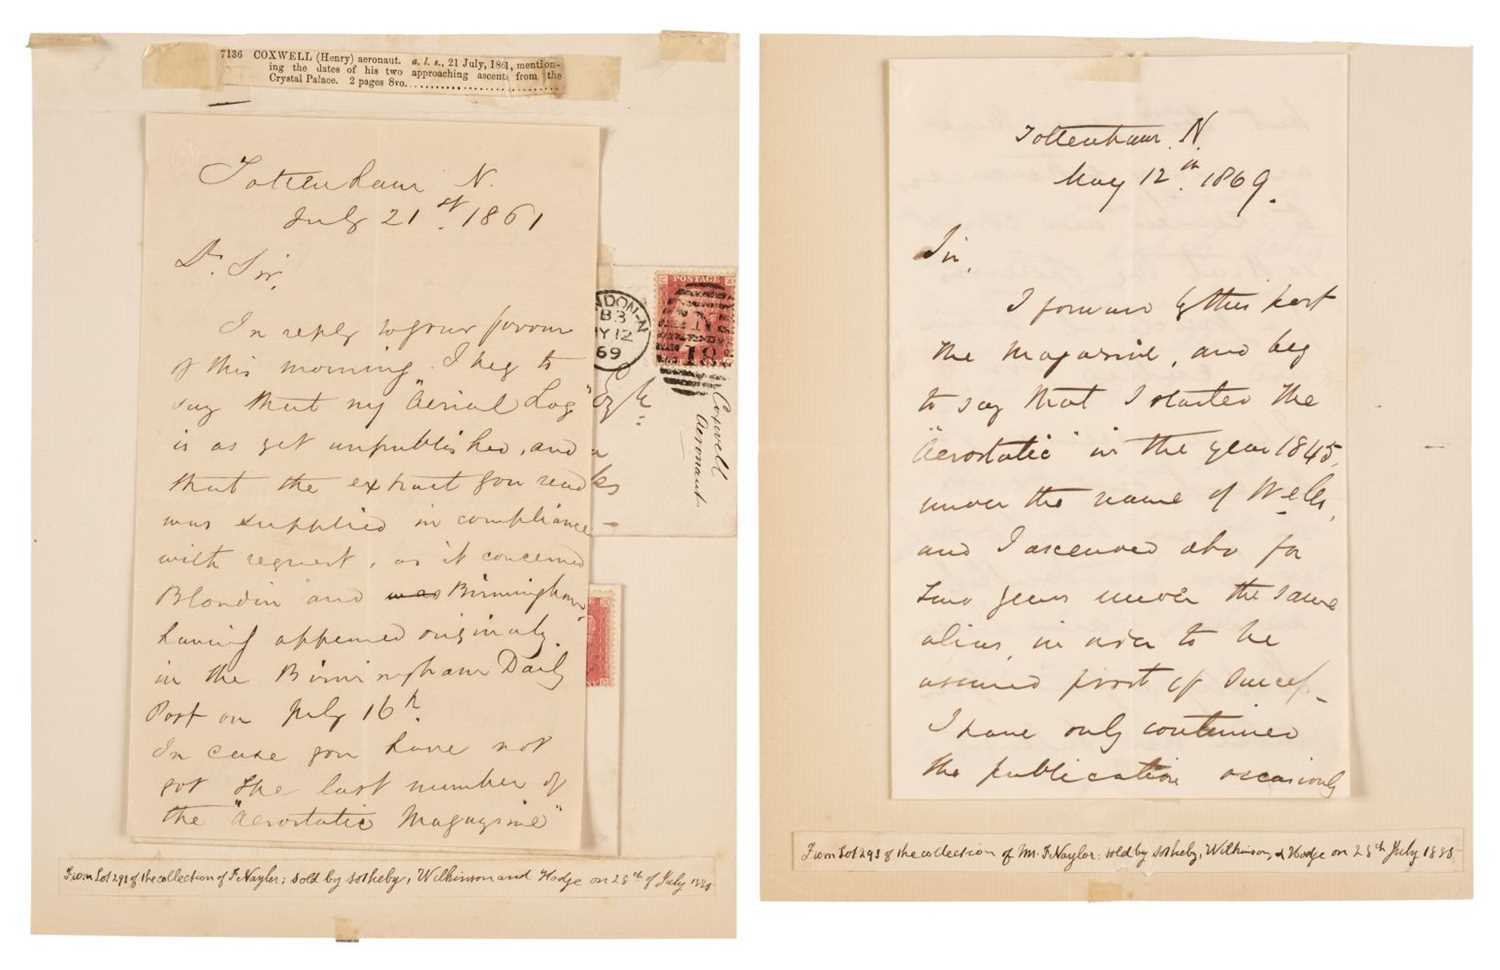 7136 COXWELL (Henry) aeronaut. a. l. s., 21 July, 1861, mention-
ing the dates of his two approaching ascents from the
Crystal Palace. 2 pages 8vo.
Tottenham N.
July 21st. 1861
Dr. Sir,
In reply to your favour
of this morning. I beg to
say that my "Aerial Log"
is as yet unpublished, and
that the extract you read
was supplied in compliance
with request, as it concerned
Blondin and was Birmingham,
having appeared originaly
in the Birmingham Daily
Post on July 16th.
In case you have not
got the last number of
the "Aerostatic Magazine"
NDON-N
B3
Y12
69
POSTAGE
N
18
Coxwell
Aeronaut
From Lot 293 of the collection of F. Naylor; sold by Sotheby, Wilkinson and Hodge on 28th of July 1885
Tottenham. N.
May 12th. 1869.
Sir,
I forward by this post
the Magazine, and beg
to say that I started the
"Aerostatic" in the year 1845,
under the name of Wells,
and I ascended also for
two years under the same
alias, in order to be
assured first of success_
I have only continued
the publication occasionly
From Lot 293 of the collection of Mr. F. Naylor: sold by Sotheby, Wilkinson, & Hodge on 28th July 1885.